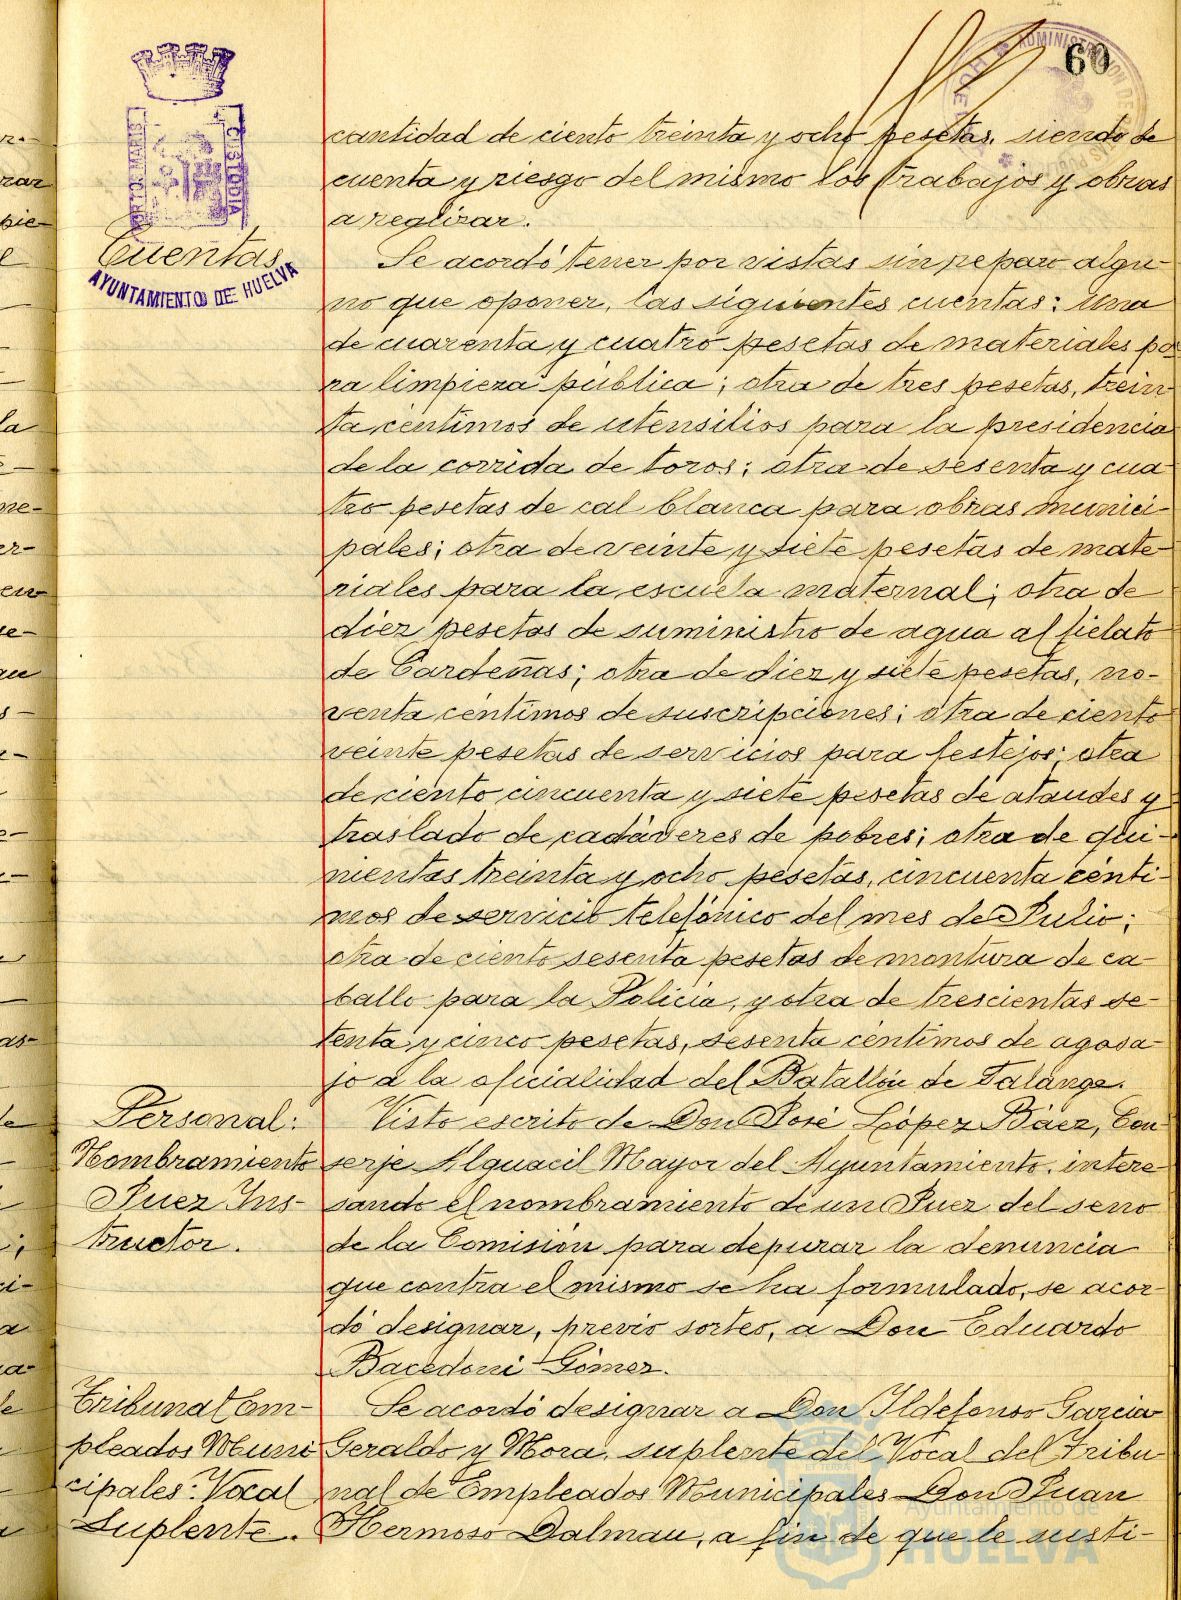 60
ADMINISTRACION DE
HUELVA
PORTUS MARIS
CUSTODIA
AYUNTAMIENTO DE HUELVA
cantidad de ciento treinta y ocho pesetas, siendo de
cuenta y riesgo del mismo los trabajos y obras
a realizar.
Cuentas
Se acordó tener por vistas sin reparo algu-
no que oponer, las siguientes cuentas: una
de cuarenta y cuatro pesetas de materiales pa-
ra limpieza pública; otra de tres pesetas, trein-
ta céntimos de utensilios para la presidencia
de la corrida de toros; otra de sesenta y cua-
tro pesetas de cal blanca para obras munici-
pales; otra de veinte y siete pesetas de mate-
riales para la escuela maternal; otra de
diez pesetas de suministro de agua al fielato
de Cardeñas; otra de diez y siete pesetas, no-
venta céntimos de suscripciones; otra de ciento
veinte pesetas de servicios para festejos; otra
de ciento cincuenta y siete pesetas de ataudes y
traslado de cadáveres de pobres; otra de qui-
nientas treinta y ocho pesetas, cincuenta cénti-
mos de servicio telefónico del mes de Julio;
otra de ciento sesenta pesetas de montura de ca-
ballo para la Policía, y otra de trescientas se-
tenta y cinco pesetas, sesenta céntimos de agasa-
jo a la oficialidad del Batallón de Talange.
Personal:
Nombramiento
Juez Ins-
tructor.
Visto escrito de Don José López Báez, Con-
serje Alguacil Mayor del Ayuntamiento, intere-
sando el nombramiento de un Juez del seno
de la Comisión para depurar la denuncia
que contra el mismo se ha formulado, se acor-
dó designar, previo sorteo, a Don Eduardo
Bacedoni Gómez.
Tribunal Em-
pleados Muni
cipales: Vocal
Suplente.
Se acordó designar a Don Ildefonso Garcia
Geraldo y Mora, suplente del Vocal del Tribu-
nal de Empleados Municipales Don Juan
Hermoso Dalmau, a fin de que le susti-
Ayuntamiento de
HUELVA